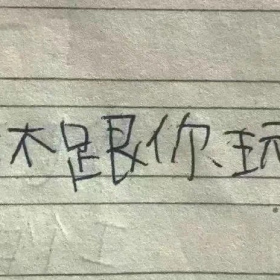 不跟你玩